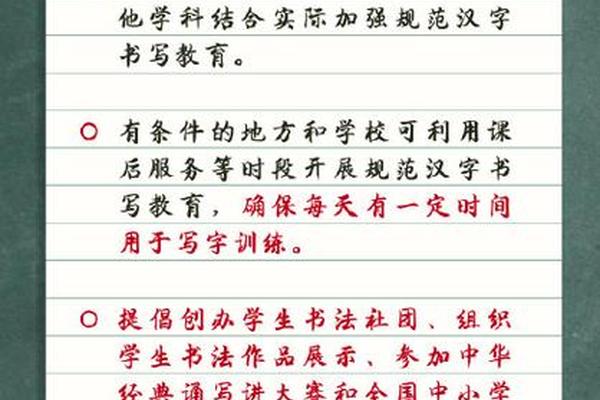 他学科结合实际加强规范汉字
书写教育。
有条件的地方和学校可利用课
后服务等时段开展规范汉字书
写教育，确保每天有一定时间
用于写字训练。
提倡创办学生书法社团、组织
学生书法作品展示、参加中华
经典诵写讲大赛和全国中小学